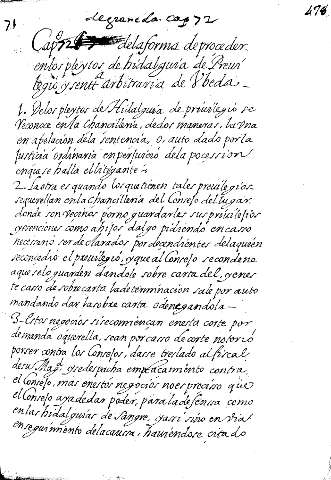 71
de granada cap 72
478
Cap.º 72 de la forma de proceder
en los pleytos de hidalguia de Previ
legio, y sentª arbitraria de Vbeda
1. De los pleytos de Hidalguia de previlegio se
reconoce en la Chancilleria, de dos maneras, la vna
en apelacion de la sentencia, o, auto dado por la
justicia ordinaria en perjuicio de la possession
en que se halla el litigante
2. La otra es quando los que tienen tales previlegios
se querellan en la Chancilleria del Consejo del lugar
donde son vecinos por no guardarles sus previlegios
y esenciones como a hijos dalgo pidiendo en caso
necesario ser declarados por decendientes de la quien
se concedio el previlegio, y que al Consejo se condene
a que se lo guarden dandole sobre carta del, y en es
te caso de sobre carta la determinacion sale por auto
mandando dar la sobre carta o denegandola
3. Estos negocios si se comiençan en esta corte por
demanda o querella, sean por caso de corte notorio
por ser contra los Consejos, dasse treslado al fiscal
de su Magᵈ. y se despacha emplaçamiento contra
el Consejo, mas en estos negocios no es preciso que
el Consejo aya de dar poder, para la defensa como
en las hidalguias de Sangre, y assi sino en vian
en seguimiento de la causa, haviendose citado